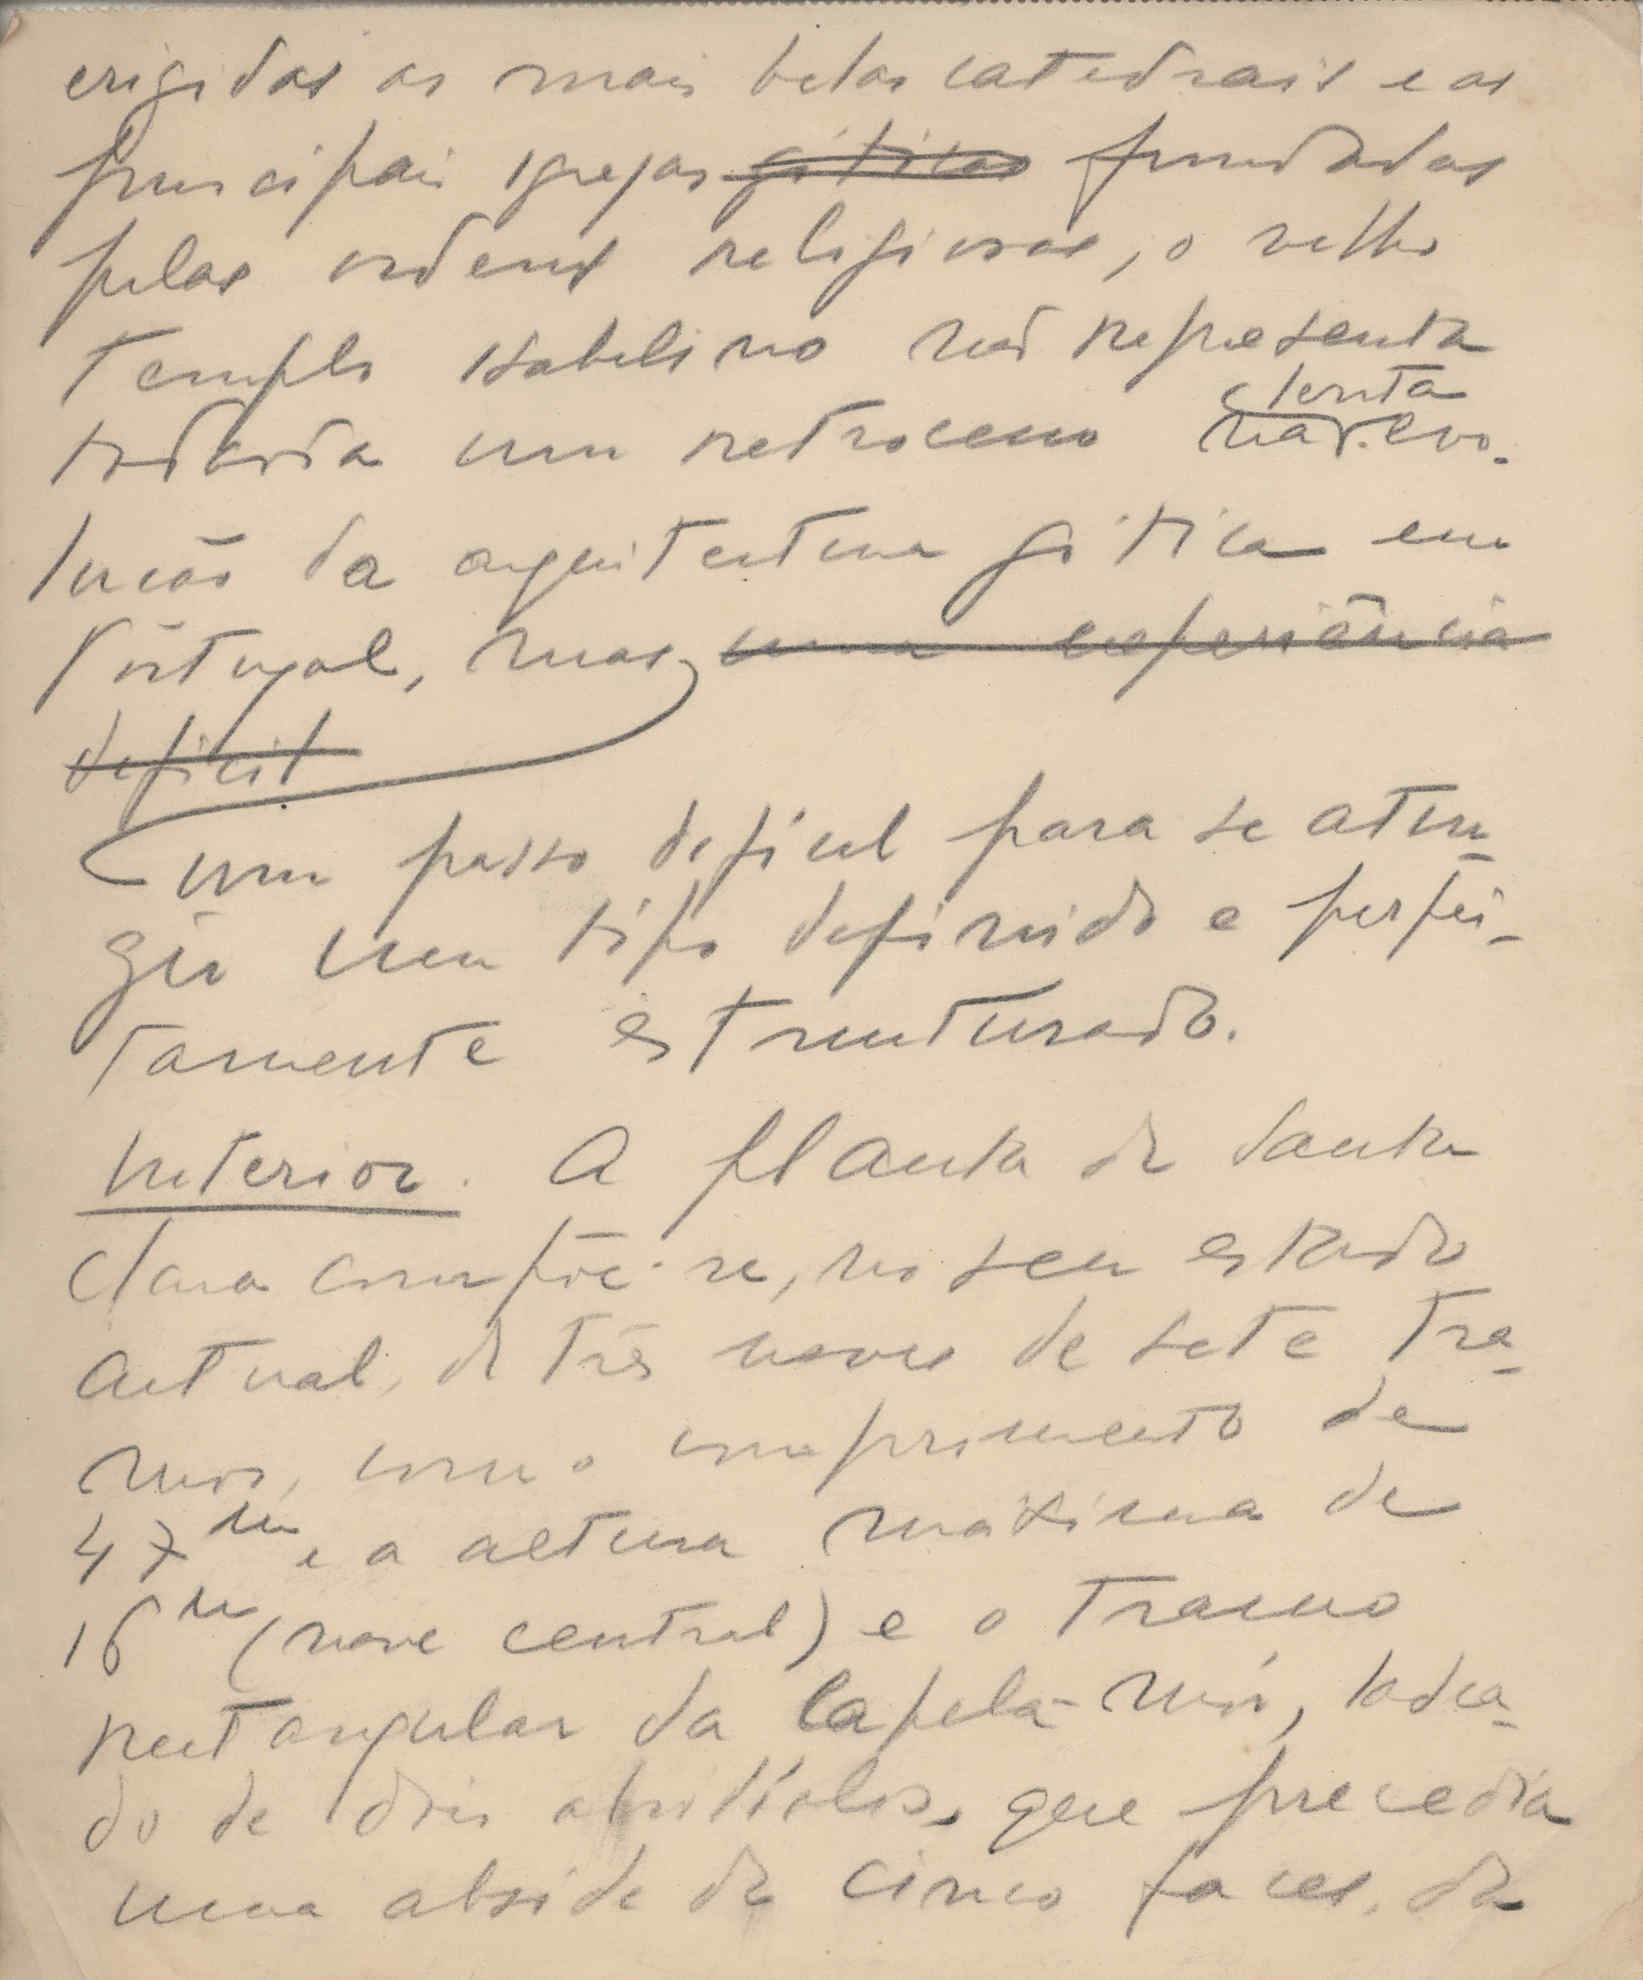 erigidas as mais belas catedrais e as
principais igrejas góticas fundadas
pelas ordens religiosas, o velho
templo isabelino não representa
todavia um retrocesso
lenta
na evo-
lução da arquitectura gótica em
Portugal, mas uma experiência
deficit
um passo dificil para se atin-
gir um tipo definido e perfei-
tamente estructurado.
Interior. A planta de Santa
Clara compõe-se, no seu estado
actual, de três naves de sete tra-
mos, com o comprimento de
47m e a altura máxima de
16m (nave central) e o tramo
rectangular da Capela-mór, ladea-
do de dois absidíolos, que precedia
uma abside de cinco faces, de